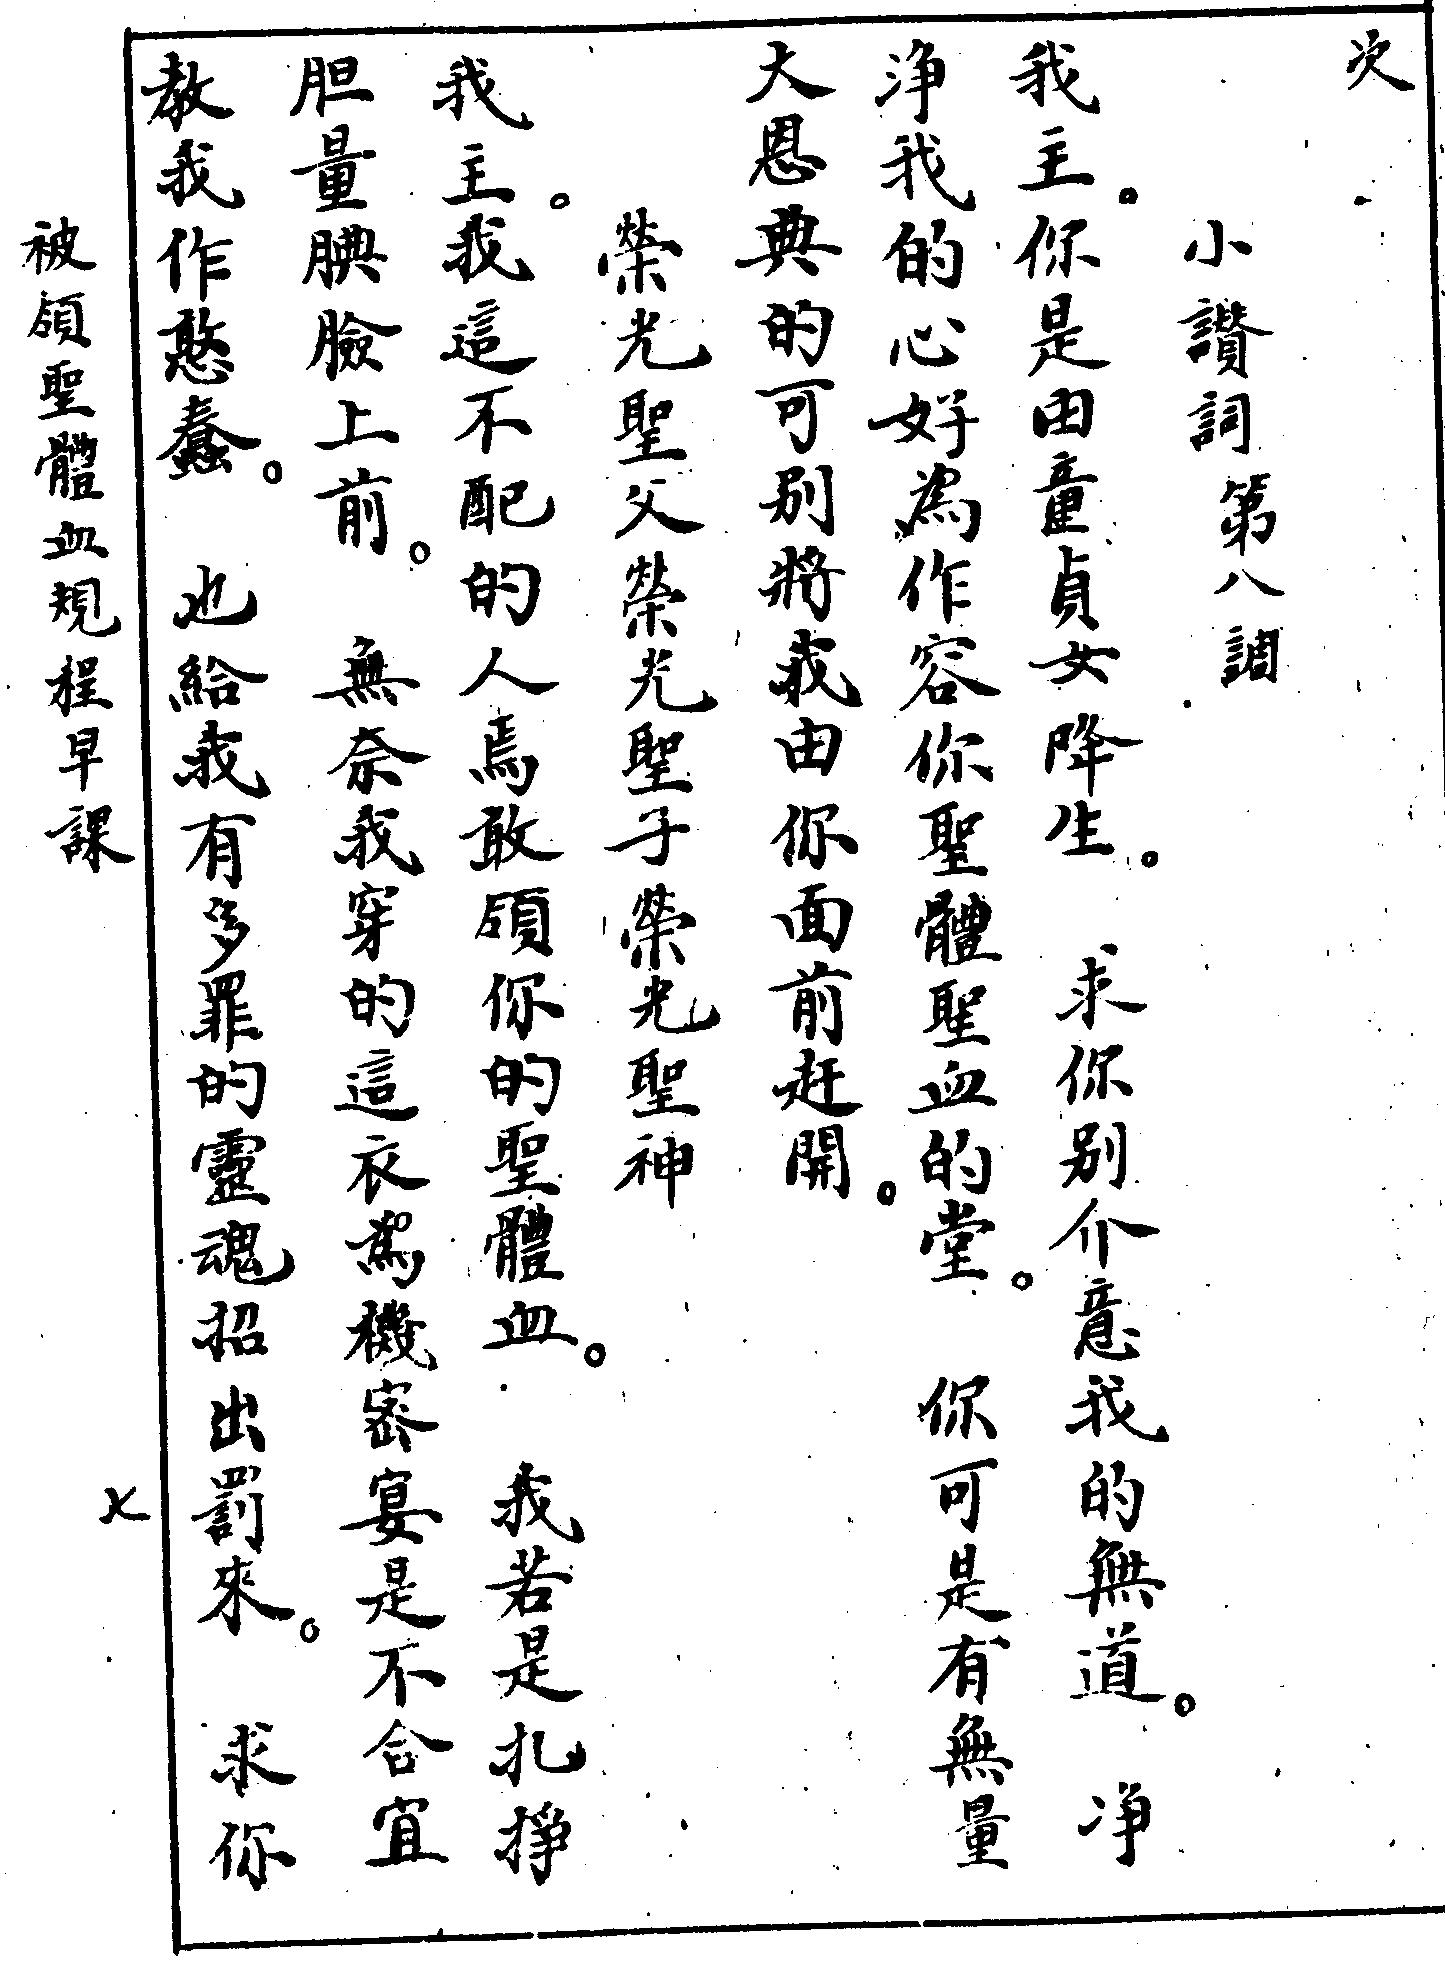 次
小讚詞第八調
我主。你是由童貞女降生。 求你別介意我的無道。 净
浄我的心好為作容你聖體聖血的堂。 你可是有無量
大恩典的可別將我由你面前赶開。
榮光聖父榮光聖子榮光聖神
我主。我這不配的人焉敢領你的聖體血。 我若是扎掙
胆量腆臉上前。 無奈我穿的這衣為機密宴是不合宜
教我作憨蠢。 也給我有多罪的靈魂招出罰來。 求你
被領聖體血規程早課
乂